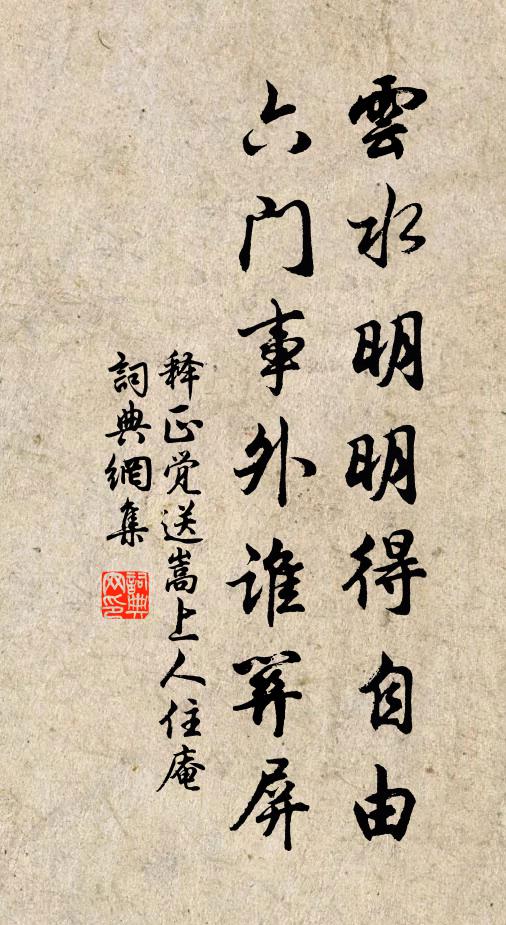 雲水明明得自由
六門事外誰屏
释正觉送嵩上人住庵
詞典網集
詞典网印